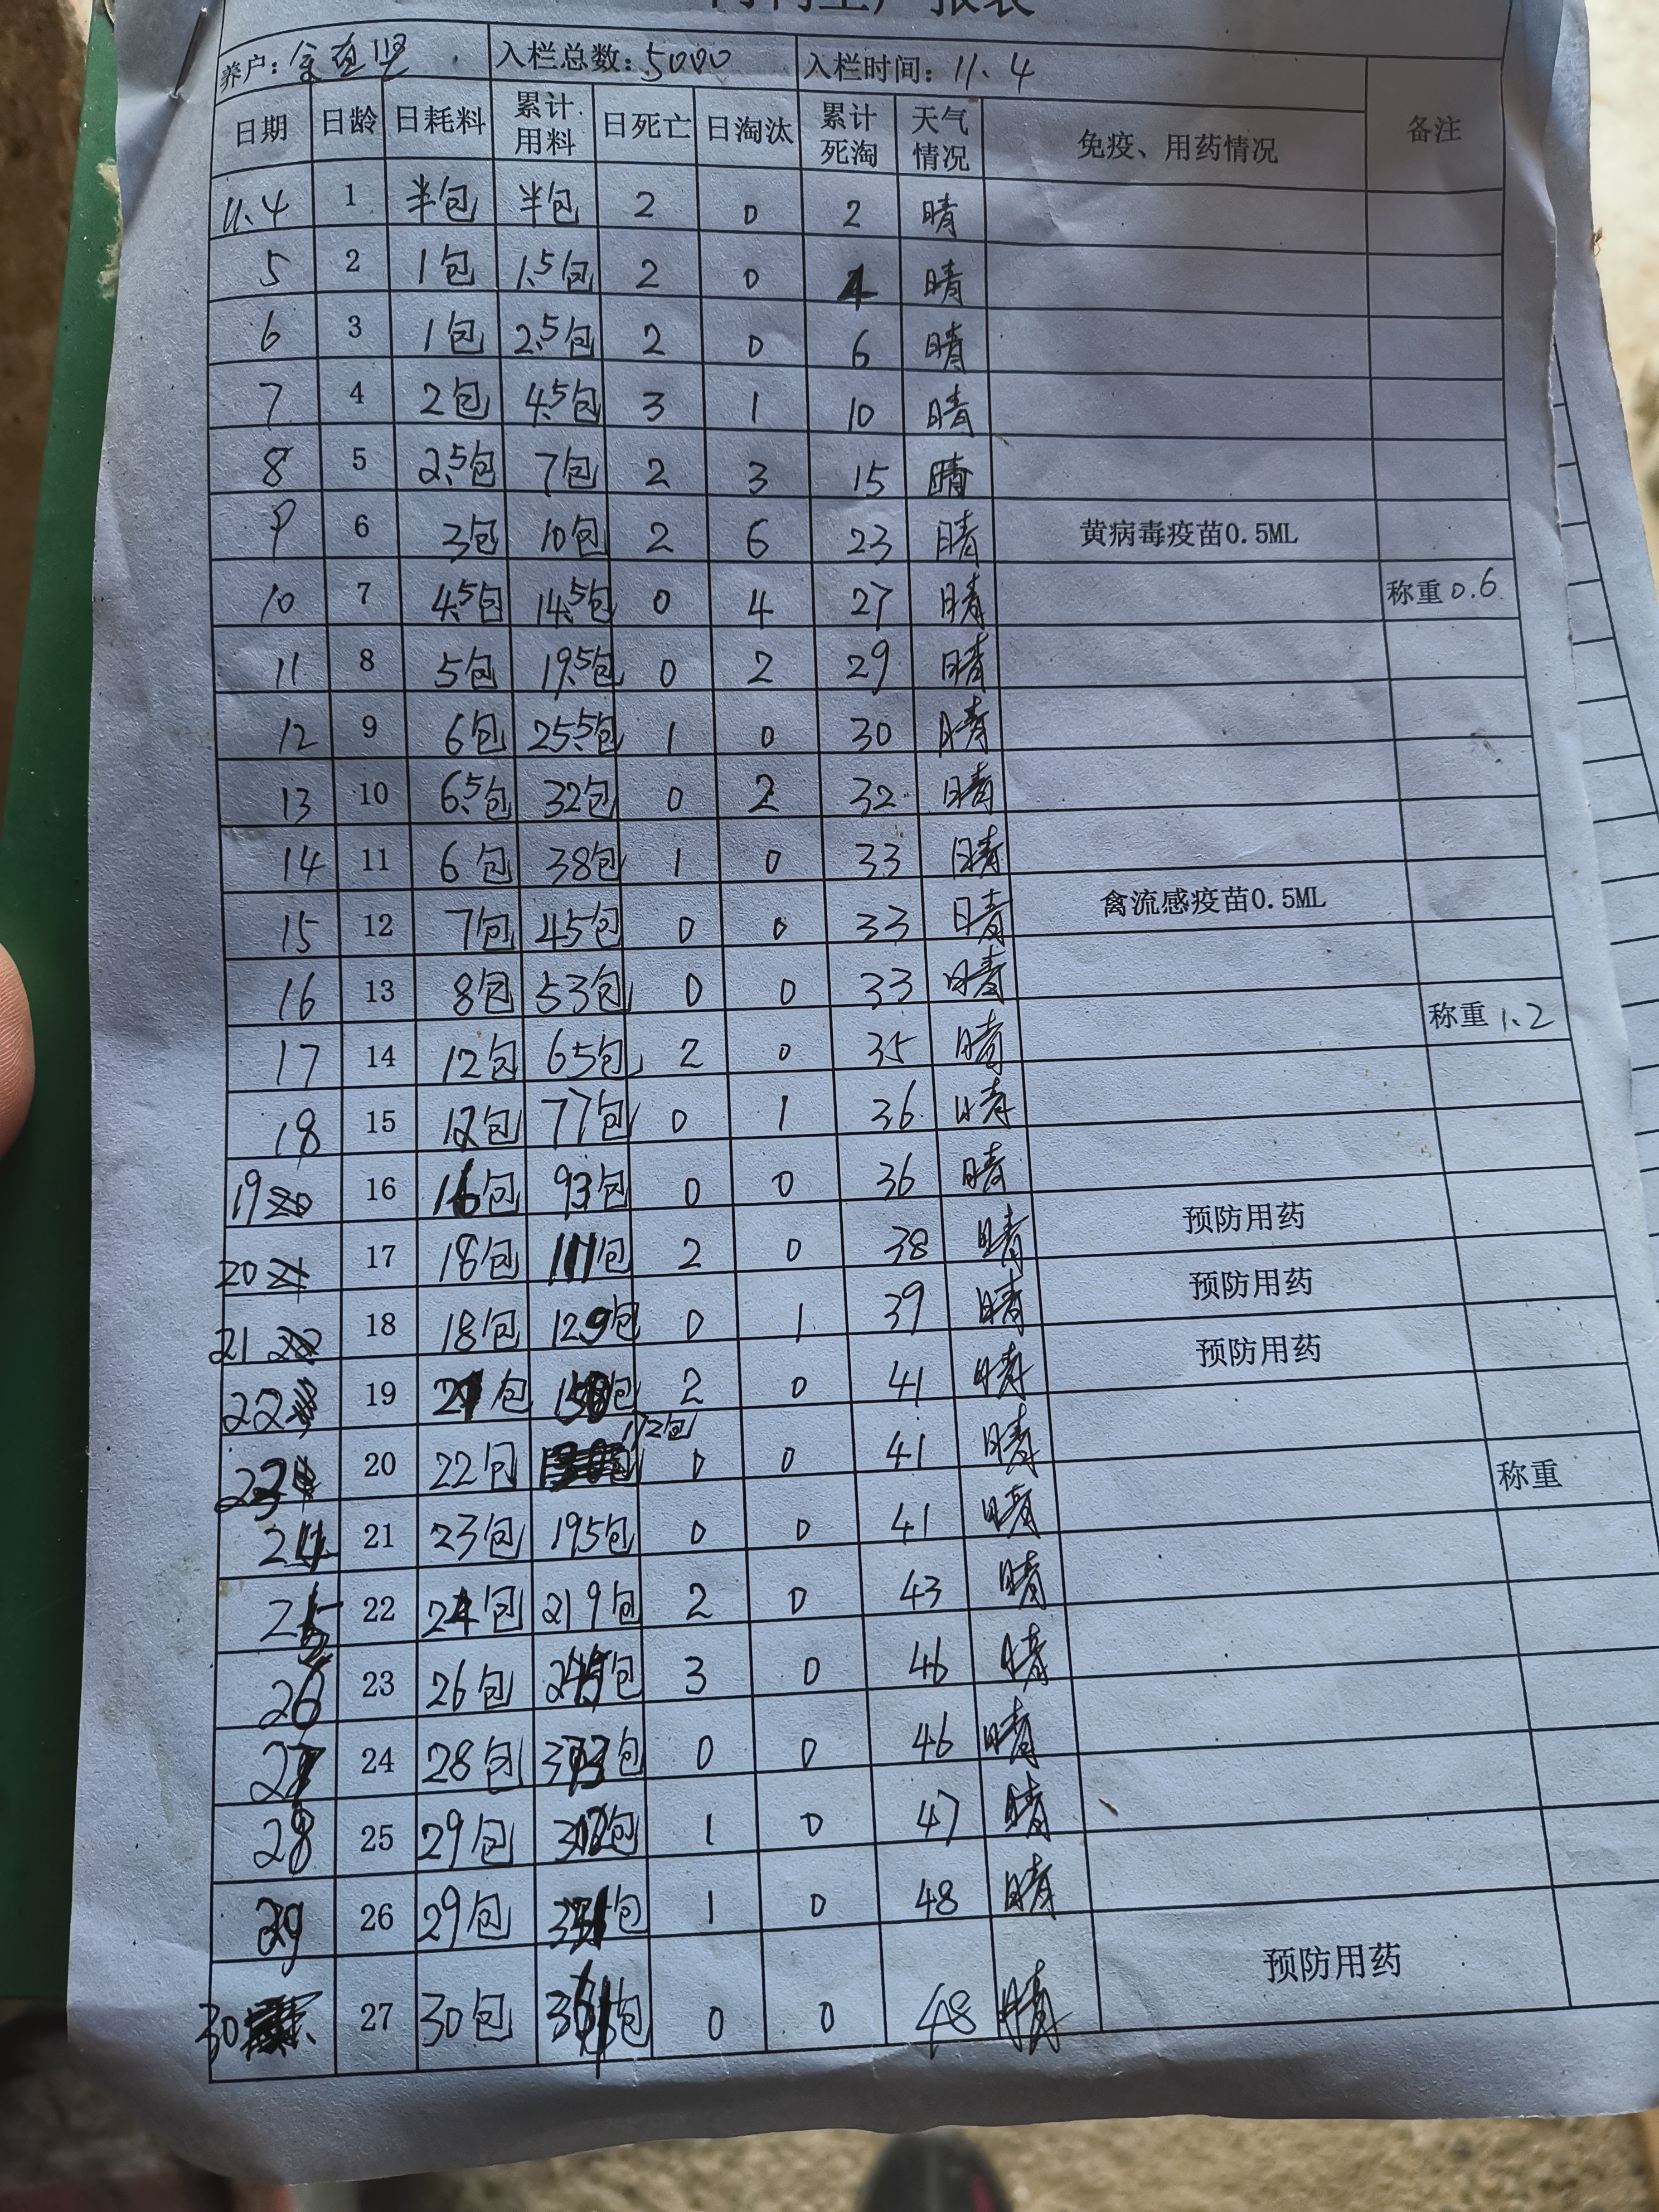 养户： 入栏总数：5000 入栏时间：11.4
日期 日龄 日耗料 累计用料 日死亡 日淘汰 累计死淘 天气情况 免疫、用药情况 备注
11.4 1 半包 半包 2 0 2 晴
5 2 1包 1.5包 2 0 4 晴
6 3 1包 2.5包 2 0 6 晴
7 4 2包 4.5包 3 1 10 晴
8 5 2.5包 7包 2 3 15 晴
9 6 3包 10包 2 6 23 晴 黄病毒疫苗0.5ML
10 7 4.5包 14.5包 0 4 27 晴 称重0.6
11 8 5包 19.5包 0 2 29 晴
12 9 6包 25.5包 1 0 30 晴
13 10 6.5包 32包 0 2 32 晴
14 11 6包 38包 1 0 33 晴
15 12 7包 45包 0 0 33 晴 禽流感疫苗0.5ML
16 13 8包 53包 0 0 33 晴
17 14 12包 65包 2 0 35 晴 称重1.2
18 15 12包 77包 0 1 36 晴
19 16 16包 93包 0 0 36 晴
20 17 18包 111包 2 0 38 晴 预防用药
21 18 18包 129包 0 1 39 晴 预防用药
22 19 21包 150包 2 0 41 晴 预防用药
23 20 22包 172包 0 0 41 晴
24 21 23包 195包 0 0 41 晴 称重
25 22 24包 219包 2 0 43 晴
26 23 26包 245包 3 0 46 晴
27 24 28包 0 0 46 晴
28 25 29包 302包 1 0 47 晴
29 26 29包 331包 1 0 48 晴
30 27 30包 361包 0 0 48 晴 预防用药